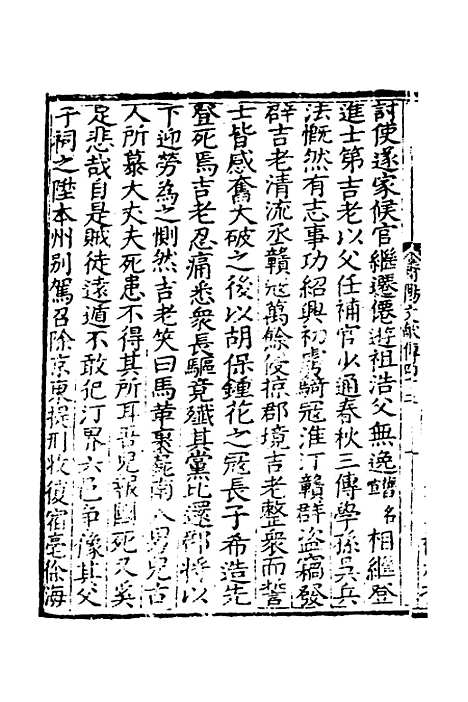 討使遂家候官繼遷僊遊祖浩父無逸諧名相繼登
進士第吉老以父任補官少通春秋三傳學孫吳兵
法慨然有志事功紹興初虜騎寇淮汀贛群盜竊發
辟吉老清流丞贛寇萬餘復掠郡境吉老整衆而誓
士皆感奮大破之後以胡保鍾花之寇長子希造先
登死焉吉老忍痛悉衆長驅竟殲其黨比還郡將以
下迎勞為之惻然吉老笑曰馬革裹屍南人男兒古
人所慕大丈夫死患不得其所耳吾兒報國死又奚
足悲哉自是賊徒遠遁不敢犯汀界六邑爭像其父
子祠之陞本州别駕召除京東提刑收復宿亳徐海
莆陽文獻傳四十三